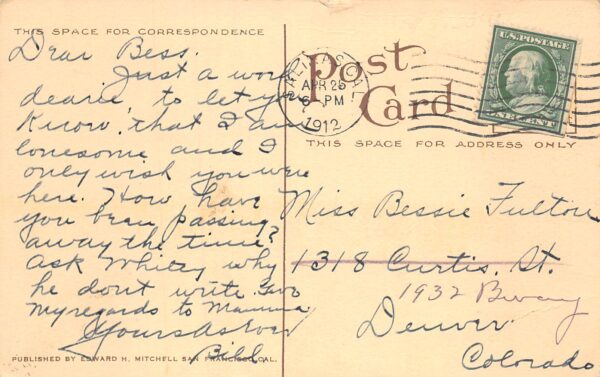 THIS SPACE FOR CORRESPONDENCE
Dear Bess.
Just a word
dearie, to let you
know, that I am
lonesome and I
only wish you were
here. How have
you been passing
away the time?
Ask Whitey why
he dont write. Give
my regards to Mamma
Yours as Ever
Bill
PUBLISHED BY EDWARD H. MITCHELL SAN FRANCISCO, CAL.
APR 25
6 PM
1912
Post
Card
U.S. POSTAGE
ONE CENT
THIS SPACE FOR ADDRESS ONLY
Miss Bessie Fulton
1318 Curtis. St.
1932 Bway
Denver
Colorado